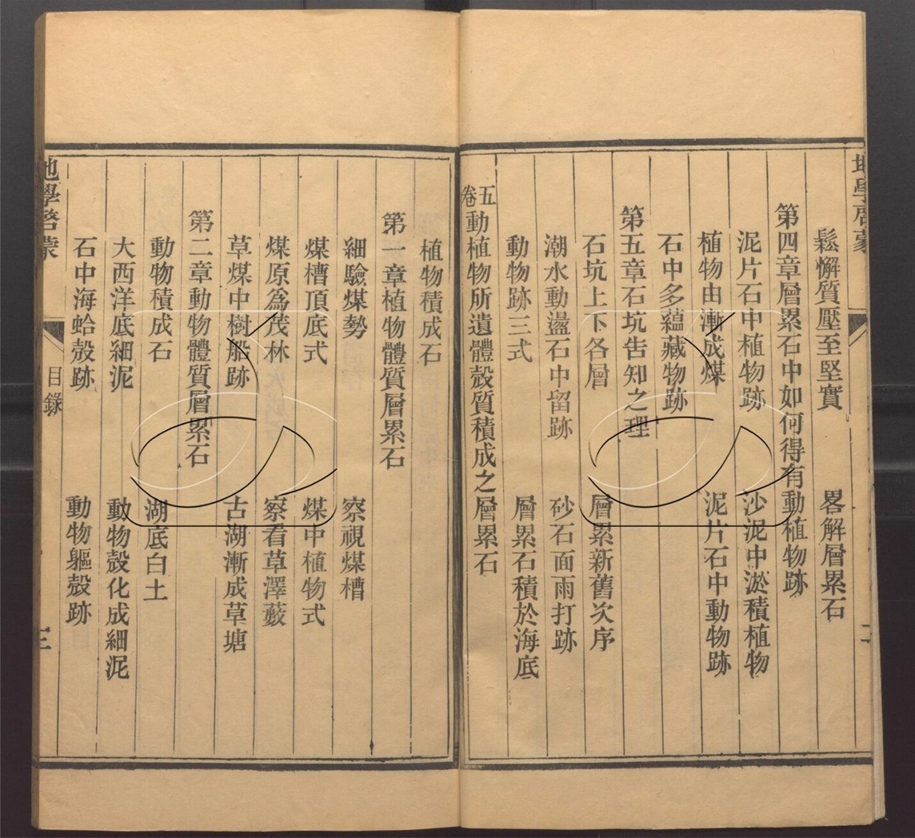 地學啓蒙
二
鬆懈質壓至堅實　畧解層累石
第四章層累石中如何得有動植物跡
泥片石中植物跡　沙泥中淤積植物
植物由漸成煤　泥片石中動物跡
石中多蘊藏物跡
第五章石坑告知之理
石坑上下各層　層累新舊次序
潮水動盪石中留跡　砂石面雨打跡
動物跡三式　層累石積於海底
卷五動植物所遺體殼質積成之層累石
植物積成石
第一章植物體質層累石
細驗煤勢　察視煤槽
煤槽頂底式　煤中植物式
煤原爲茂林　察看草澤藪
草煤中樹船跡　古湖漸成草塘
第二章動物體質層累石
動物積成石　湖底白土
大西洋底細泥　動物殼化成細泥
石中海蛤殼跡　動物軀殼跡
地學啓蒙
目錄
三